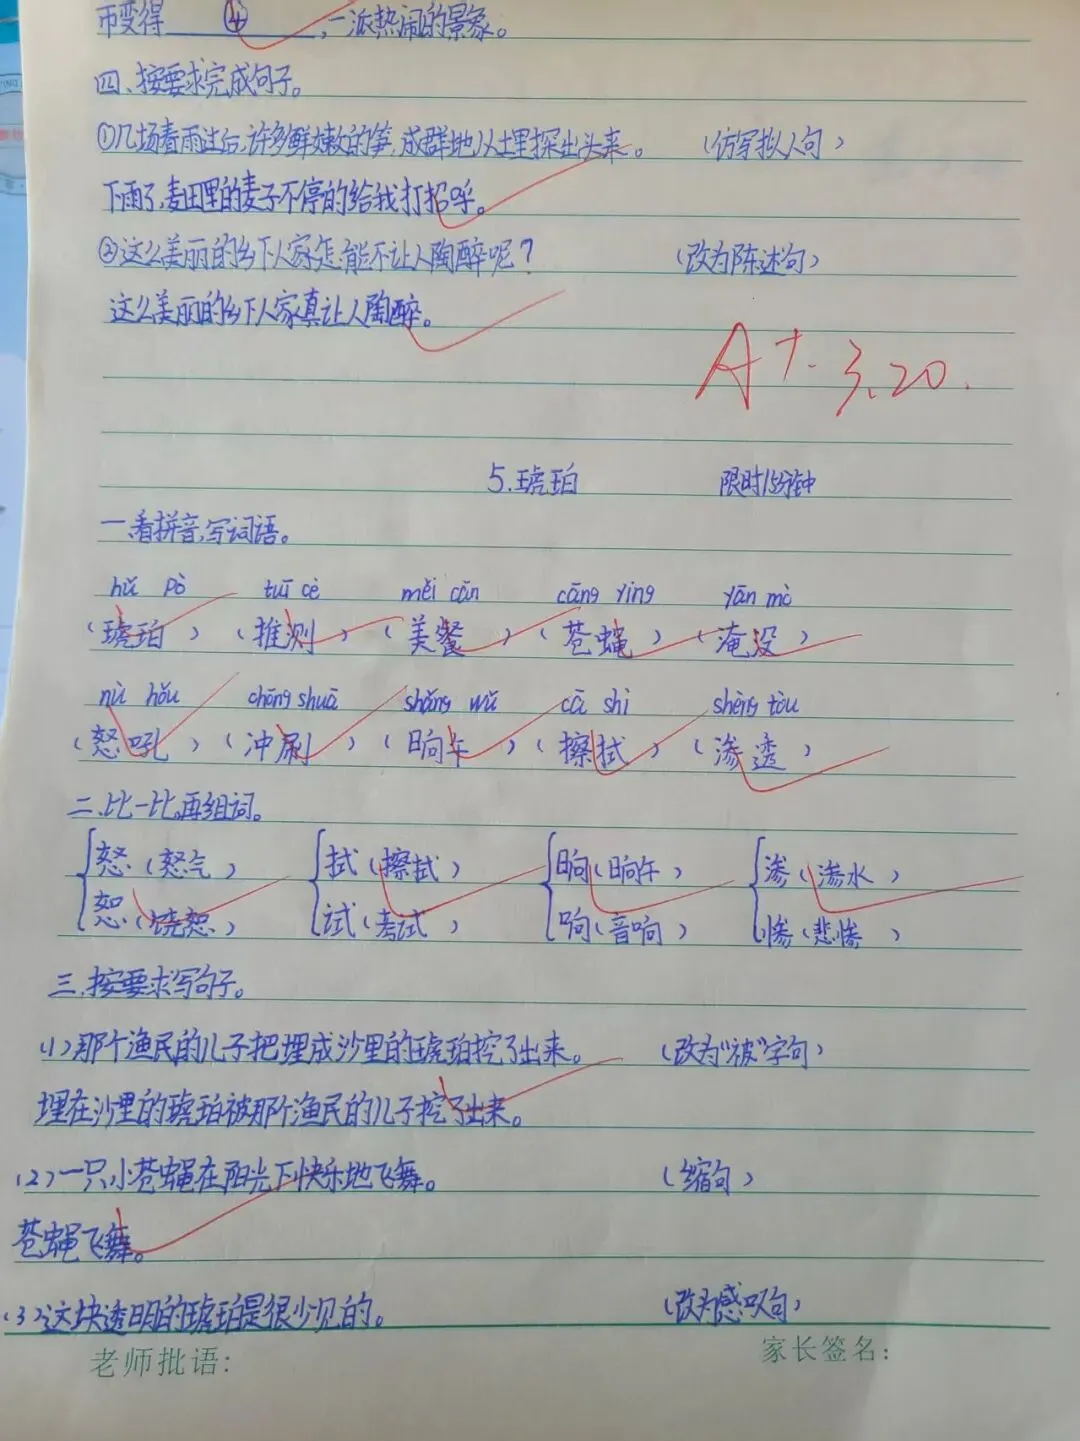 币变得 ④ ,一派热闹的景象。
四、按要求完成句子。
①几场春雨过后,许多鲜嫩的笋,成群地从土里探出头来。 (仿写拟人句)
下雨了,麦田里的麦子不停的给我打招呼。
②这么美丽的乡下人家怎能不让人陶醉呢? (改为陈述句)
这么美丽的乡下人家真让人陶醉。
A+. 3.20.
5.琥珀 限时15分钟
一.看拼音,写词语。
hǔ pò tuī cè měi cān cāng ying yān mò
(琥珀) (推测) (美餐) (苍蝇) (淹没)
nù hǒu chōng shuā shǎng wǔ cā shì shèng tòu
(怒吼) (冲刷) (晌午) (擦拭) (渗透)
二.比一比,再组词。
怒(怒气) 拭(擦拭) 晌(晌午) 渗(渗水)
恕(饶恕) 试(考试) 响(音响) 惨(悲惨)
三.按要求写句子。
(1)那个渔民的儿子把埋成沙里的琥珀挖了出来。 (改为“被”字句)
埋在沙里的琥珀被那个渔民的儿子挖了出来。
(2)一只小苍蝇在阳光下快乐地飞舞。 (缩句)
苍蝇飞舞。
(3)这块透明的琥珀是很少见的。 (改为感叹句)
老师批语: 家长签名: